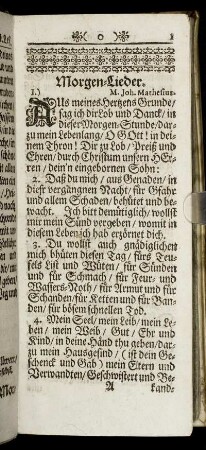 ( o ) 3
Morgen-Lieder.
1.) M. Joh. Mathesius.
AUs meines Hertzens Grunde/
sag ich dir Lob und Danck/ in
dieser Morgen-Stunde/ dar-
zu mein Lebenlang/ O GOtt! in dei-
nem Thron! Dir zu Lob/ Preiß und
Ehren/ durch Christum unsern HEr-
ren/ dein'n eingebornen Sohn:
2. Daß du mich/ aus Genaden/ in
dieser vergangnen Nacht/ für Gfahr
und allem Schaden/ behütet und be-
wacht. Ich bitt demütiglich/ wollst
mir mein Sünd vergeben/ womit in
diesem Leben ich hab erzörnt dich.
3. Du wollst auch gnädiglichen
mich bhüten diesen Tag/ fürs Teu-
fels List und Wüten/ für Sünden
und für Schmach/ für Feur- und
Wassers-Noth/ für Armut und für
Schanden/ für Ketten und für Ban-
den/ für bösem schnellen Tod.
4. Mein Seel/ mein Leib/ mein Le-
ben/ mein Weib/ Gut/ Ehr und
Kind/ in deine Händ thu geben/ dar-
zu mein Hausgesind/ (ist dein Ge-
schenck und Gab) mein Eltern und
Verwandten/ Geschwistert und Be-
A kand-